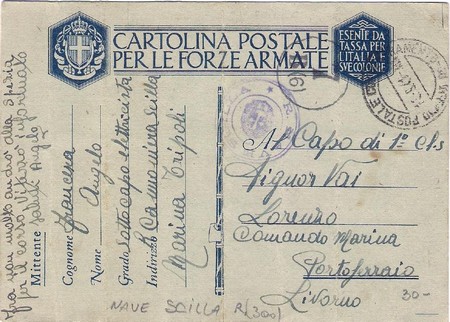 CARTOLINA POSTALE
PER LE FORZE ARMATE
ESENTE DA
TASSA PER
L'ITALIA E
SUE COLONIE
Al Capo di 1ª Cls
Signor Vai
Lorenzo
Comando Marina
Portoferraio
Livorno
30-
Mittente
Cognome
Nome Angelo
Grado Sottocapo elettricista
Indirizzo R Cannoniera Scilla
Marina Tripoli
Fra non molto andrò alla Spezia
per il corso
Saluti Angelo
NAVE SCILLA